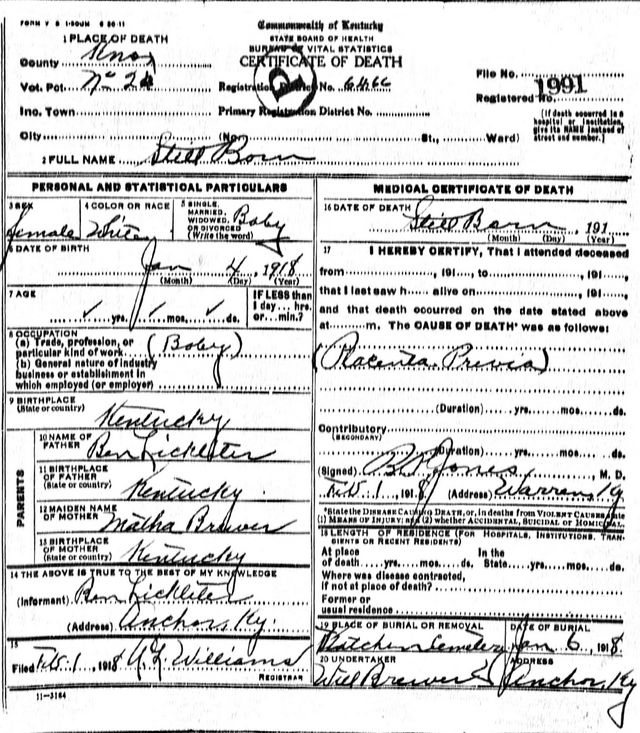 FORM V S 1-50UM 6 20-11
Commonwealth of Kentucky
STATE BOARD OF HEALTH
BUREAU OF VITAL STATISTICS
CERTIFICATE OF DEATH
1 PLACE OF DEATH
County Knox
Vot. Pct. No 24
Registration District No. 6466
File No.
Registered No. 1991
Ino. Town
Primary Registration District No.
[If death occurred in a hospital or institution, give its NAME instead of street and number.]
City (No. St., Ward)
2 FULL NAME Still Born
PERSONAL AND STATISTICAL PARTICULARS
3 SEX
Female
4 COLOR OR RACE
White
5 SINGLE, MARRIED, WIDOWED, OR DIVORCED (Write the word)
Baby
6 DATE OF BIRTH
Jan 4, 1918
(Month) (Day) (Year)
7 AGE
yrs. mos. ds.
IF LESS than 1 day... hrs. or... min.?
8 OCCUPATION
(a) Trade, profession, or particular kind of work (Baby)
(b) General nature of industry business or establishment in which employed (or employer)
9 BIRTHPLACE
(State or country)
Kentucky
PARENTS
10 NAME OF FATHER
Ben Lickliter
11 BIRTHPLACE OF FATHER
(State or country)
Kentucky
12 MAIDEN NAME OF MOTHER
Matha Brewer
13 BIRTHPLACE OF MOTHER
(State or country)
Kentucky
14 THE ABOVE IS TRUE TO THE BEST OF MY KNOWLEDGE
(Informant) Ben Lickliter
(Address) Anchor, Ky.
15
Filed Feb. 1, 1918 Williams
REGISTRAR
11-3184
MEDICAL CERTIFICATE OF DEATH
16 DATE OF DEATH
Still Born, 191
(Month) (Day) (Year)
17 I HEREBY CERTIFY, That I attended deceased
from, 191, to, 191,
that I last saw h alive on, 191,
and that death occurred on the date stated above
at m. The CAUSE OF DEATH* was as follows:
(Placenta Previa)
(Duration) yrs. mos. ds.
Contributory
(SECONDARY)
(Duration) yrs. mos. ds.
(Signed) Jones, M. D.
Feb. 1, 1918 (Address) Warren, Ky
*State the DISEASE CAUSING DEATH, or, in deaths from VIOLENT CAUSES, state
(1) MEANS OF INJURY; and (2) whether ACCIDENTAL, SUICIDAL or HOMICIDAL.
18 LENGTH OF RESIDENCE (FOR HOSPITALS, INSTITUTIONS, TRANSIENTS OR RECENT RESIDENTS)
At place of death yrs. mos. ds. In the State yrs. mos. ds.
Where was disease contracted,
If not at place of death?
Former or
usual residence
19 PLACE OF BURIAL OR REMOVAL
Cemetery
DATE OF BURIAL
Jan 6, 1918
20 UNDERTAKER
Will Brewer
ADDRESS
Anchor, Ky